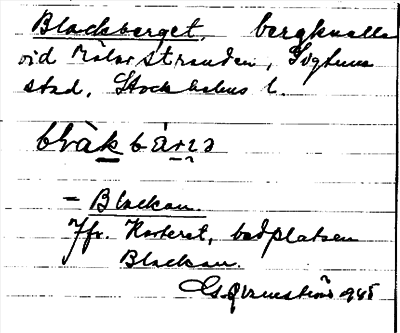 Blackberget, bergknalle
vid Mälarstranden, Sigtuna
stad, Stockholms l.
blàkbárjə
- Blackan.
Jfr. Korteret, badplatsen
Blackan.
1945